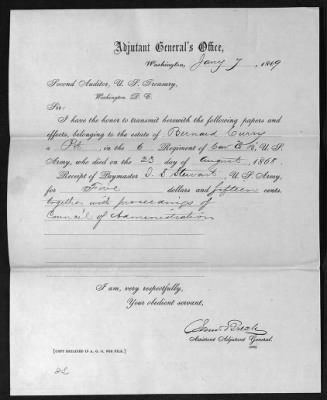 Adjutant General's Office,
Washington, Jany 7, 1869
Second Auditor, U. S. Treasury,
Washington D. C.
Sir:
I have the honor to transmit herewith the following papers and
effects, belonging to the estate of Bernard Curry
a Pvt in the 6 Regiment of Cav U. S.
Army, who died on the 23 day of August, 1868.
Receipt of Paymaster I S Stewart, U. S. Army,
for Five dollars and fifteen cents.
together with proceedings of
Council of Administration
I am, very respectfully,
Your obedient servant,
Assistant Adjutant General.
[COPY RETAINED IN A. G. O. FOR FILE.]